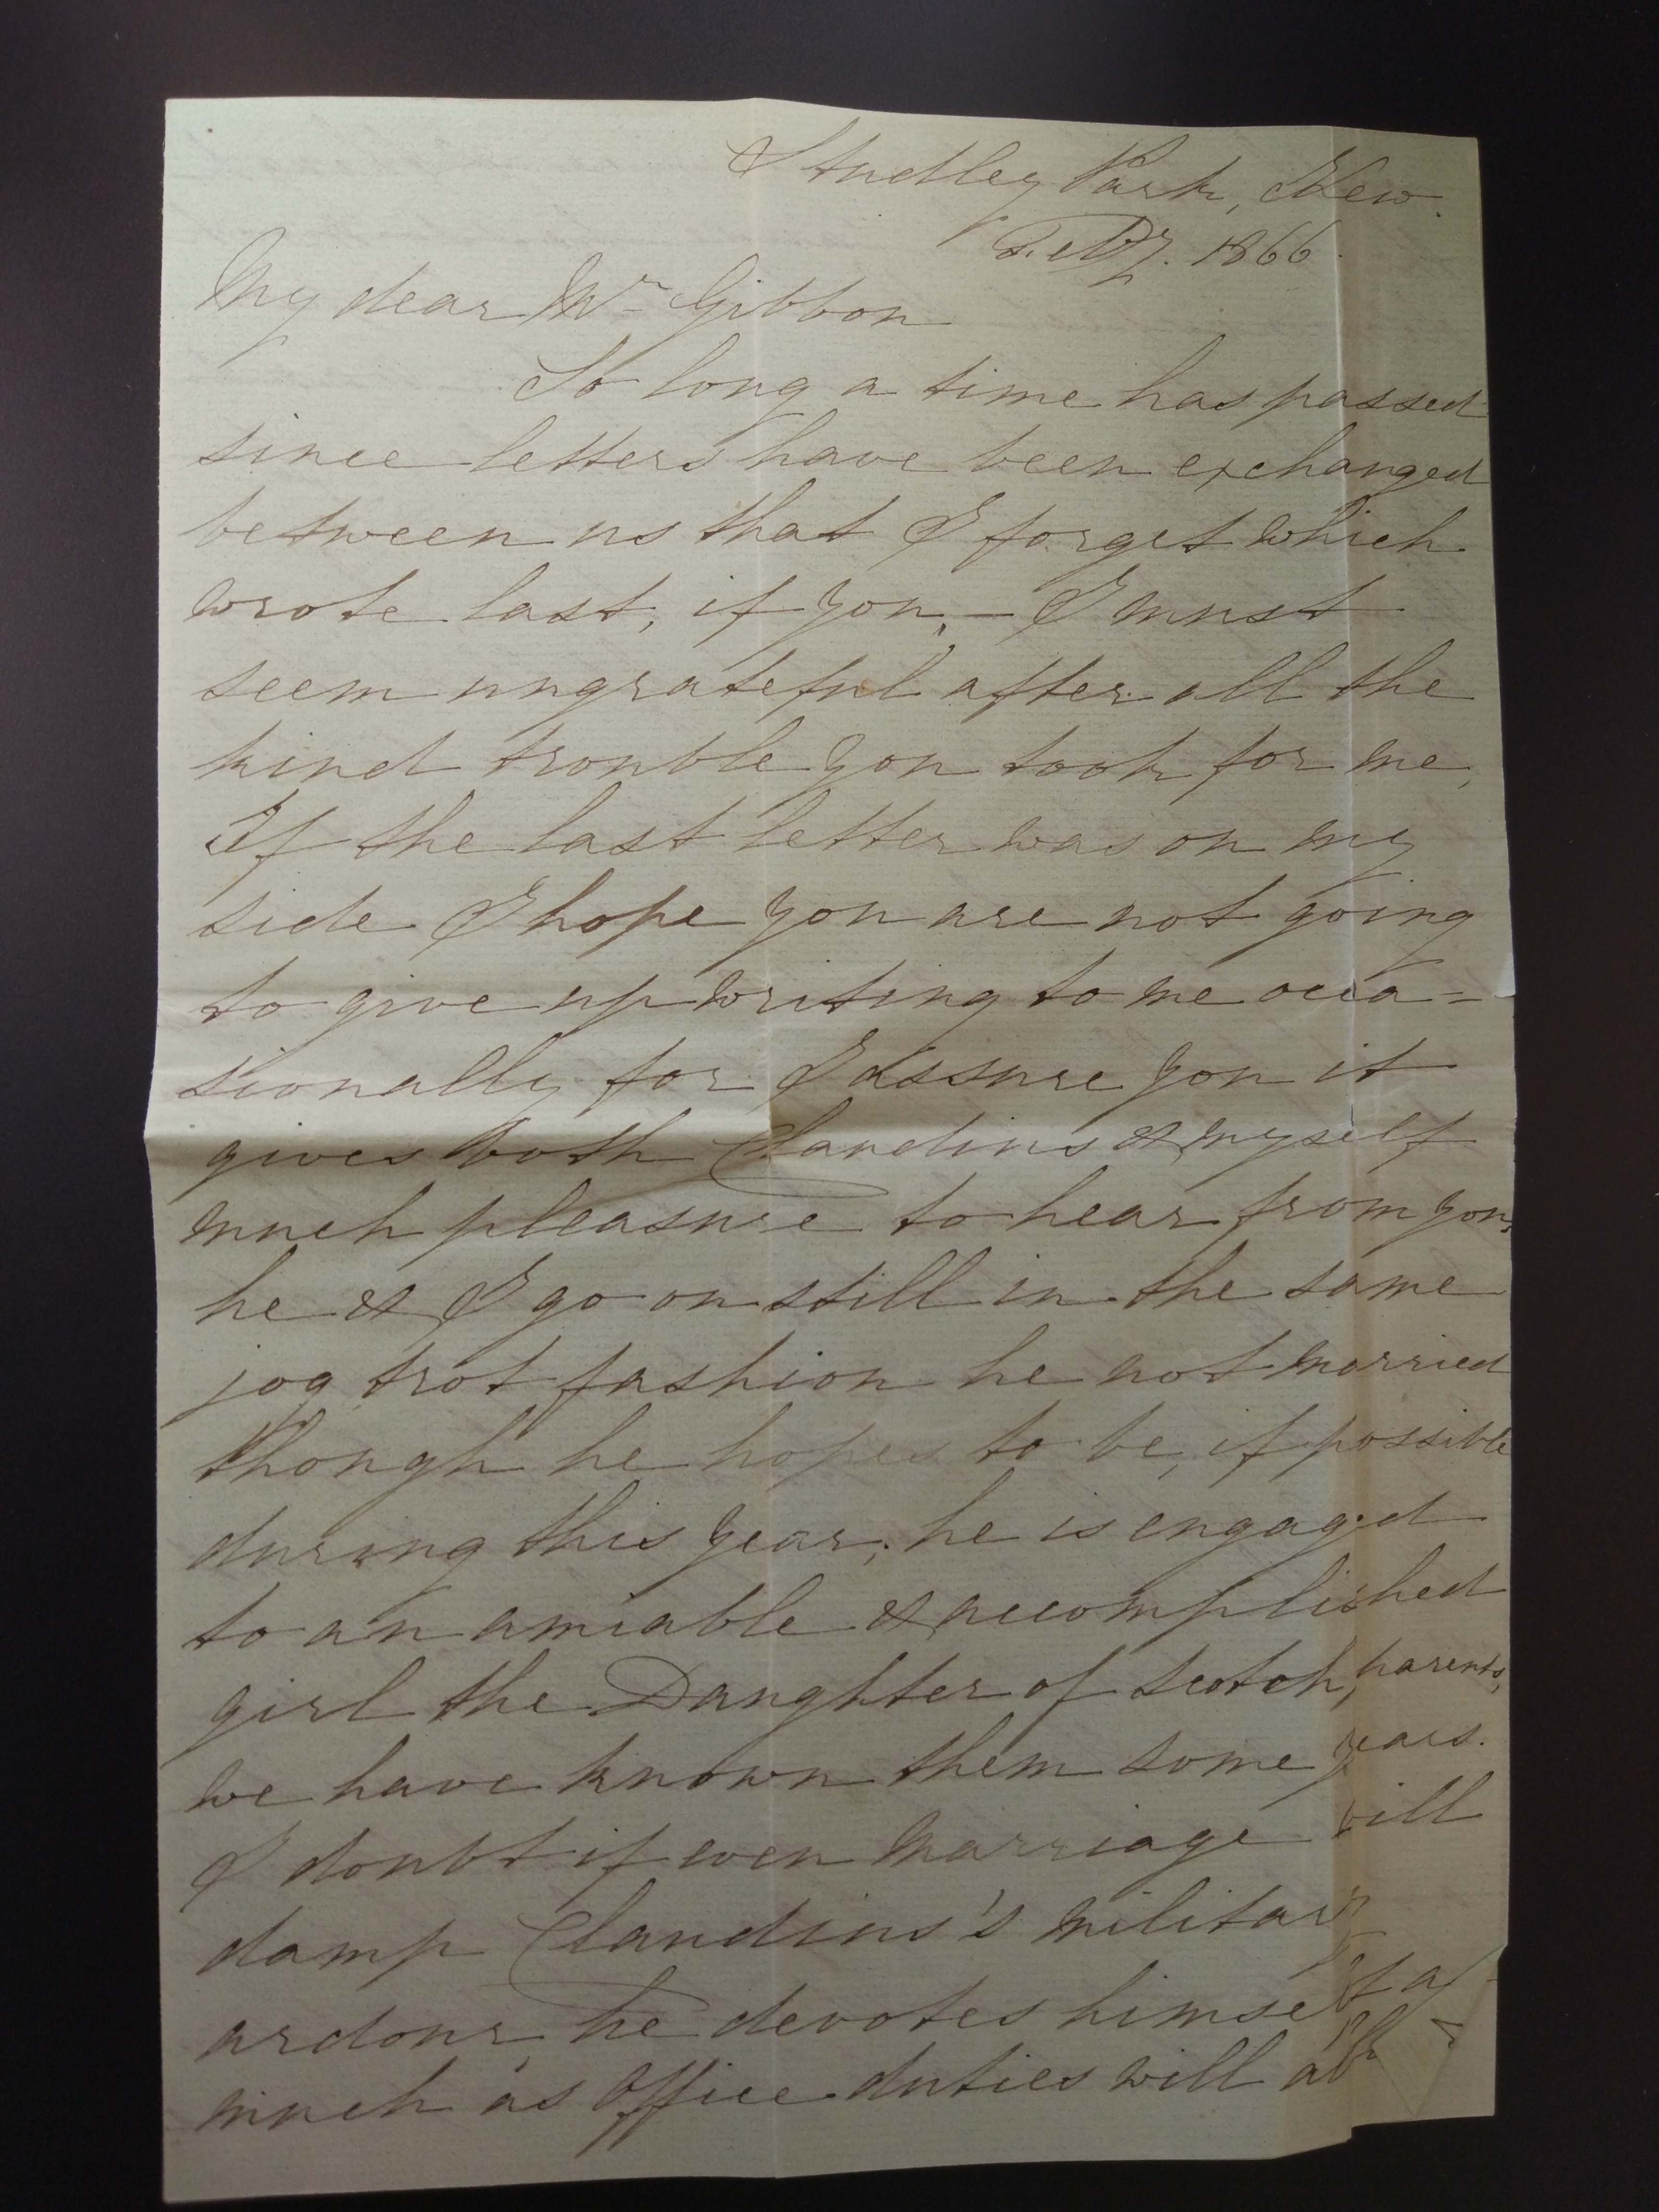 Studley Park, Kew.
Feby. 1866.
My dear Mr Gibbon
So long a time has passed
since letters have been exchanged
between us that I forget which
wrote last, if you, – I must
seem ungrateful after all the
kind trouble you took for me,
If the last letter was on my
side I hope you are not going
to give up writing to me occa=
sionally for I assure you it
gives both Claudius & myself
much pleasure to hear from you,
he & I go on still in the same
jog trot fashion he not married
though he hopes to be, if possible
during this year, he is engaged
to an amiable & accomplished
girl the Daughter of Scotch parents,
we have known them some years.
I doubt if even marriage will
damp Claudius's military
ardour, he devotes himself as
much as Office duties will